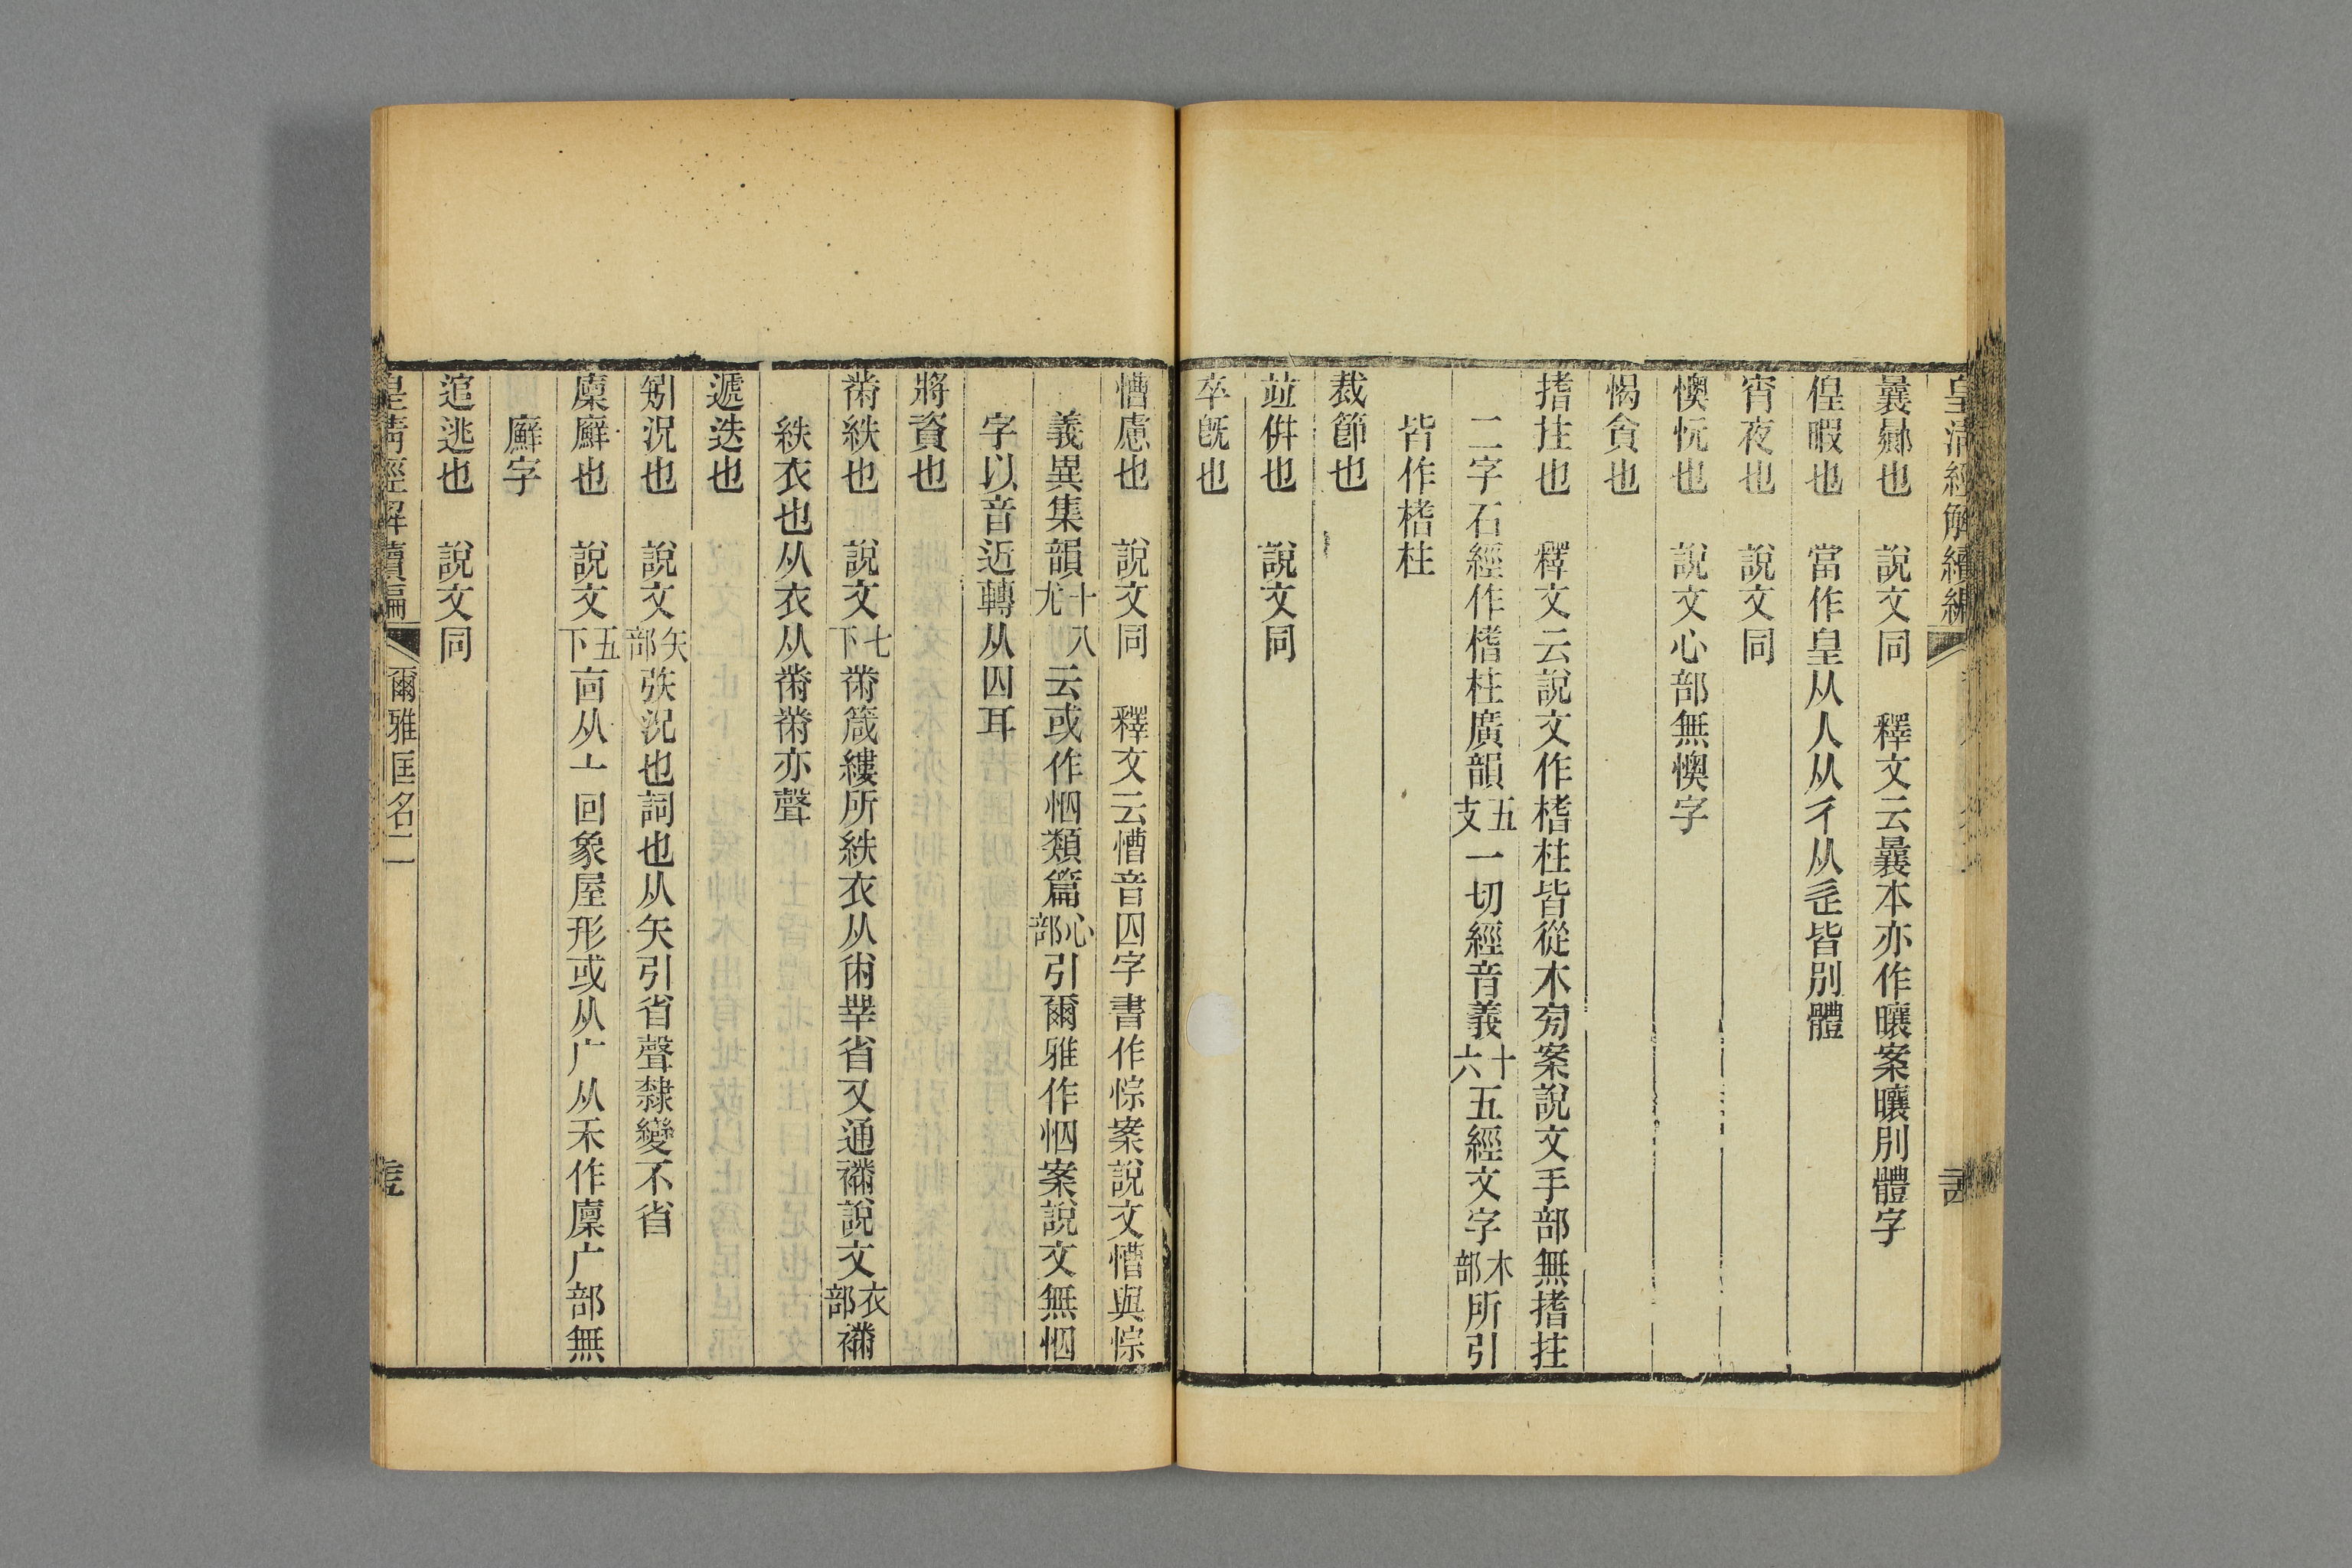 皇清經解續編
曩曏也　說文同　釋文云曩本亦作曩案曩別體字
偟暇也　當作皇从人从彳从辵皆別體
宵夜也　說文同
懊忨也　說文心部無懊字
愒貪也
搘拄也　釋文云說文作榰柱皆從木旁案說文手部無搘拄
二字石經作榰柱廣韻五支一切經音義十六五經文字木部所引
皆作榰柱
裁節也
竝併也　說文同
卒既也
慒慮也　說文同　釋文云慒音囚字書作悰案說文慒與悰
義異集韻十八尤云或作怬類篇心部引爾雅作怬案說文無怬
字以音近轉从囚耳
將資也
黹紩也　說文七下黹箴縷所紩衣从㡀丵省又通襧說文衣部襧
紩衣也从衣从黹黹亦聲
遞迭也
矧況也　說文矢部矤況也詞也从矢引省聲隸變不省
廩廯也　說文五下㐭从亠回象屋形或从广从禾作廩广部無
廯字
逭逃也　說文同
皇清經解續編　爾雅匡名二